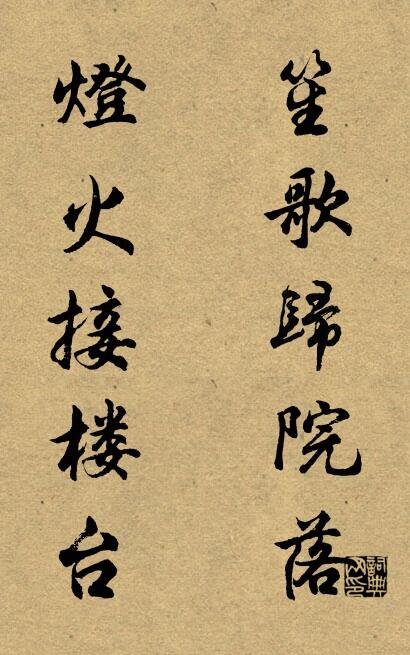 笙歌歸院落
燈火接楼台